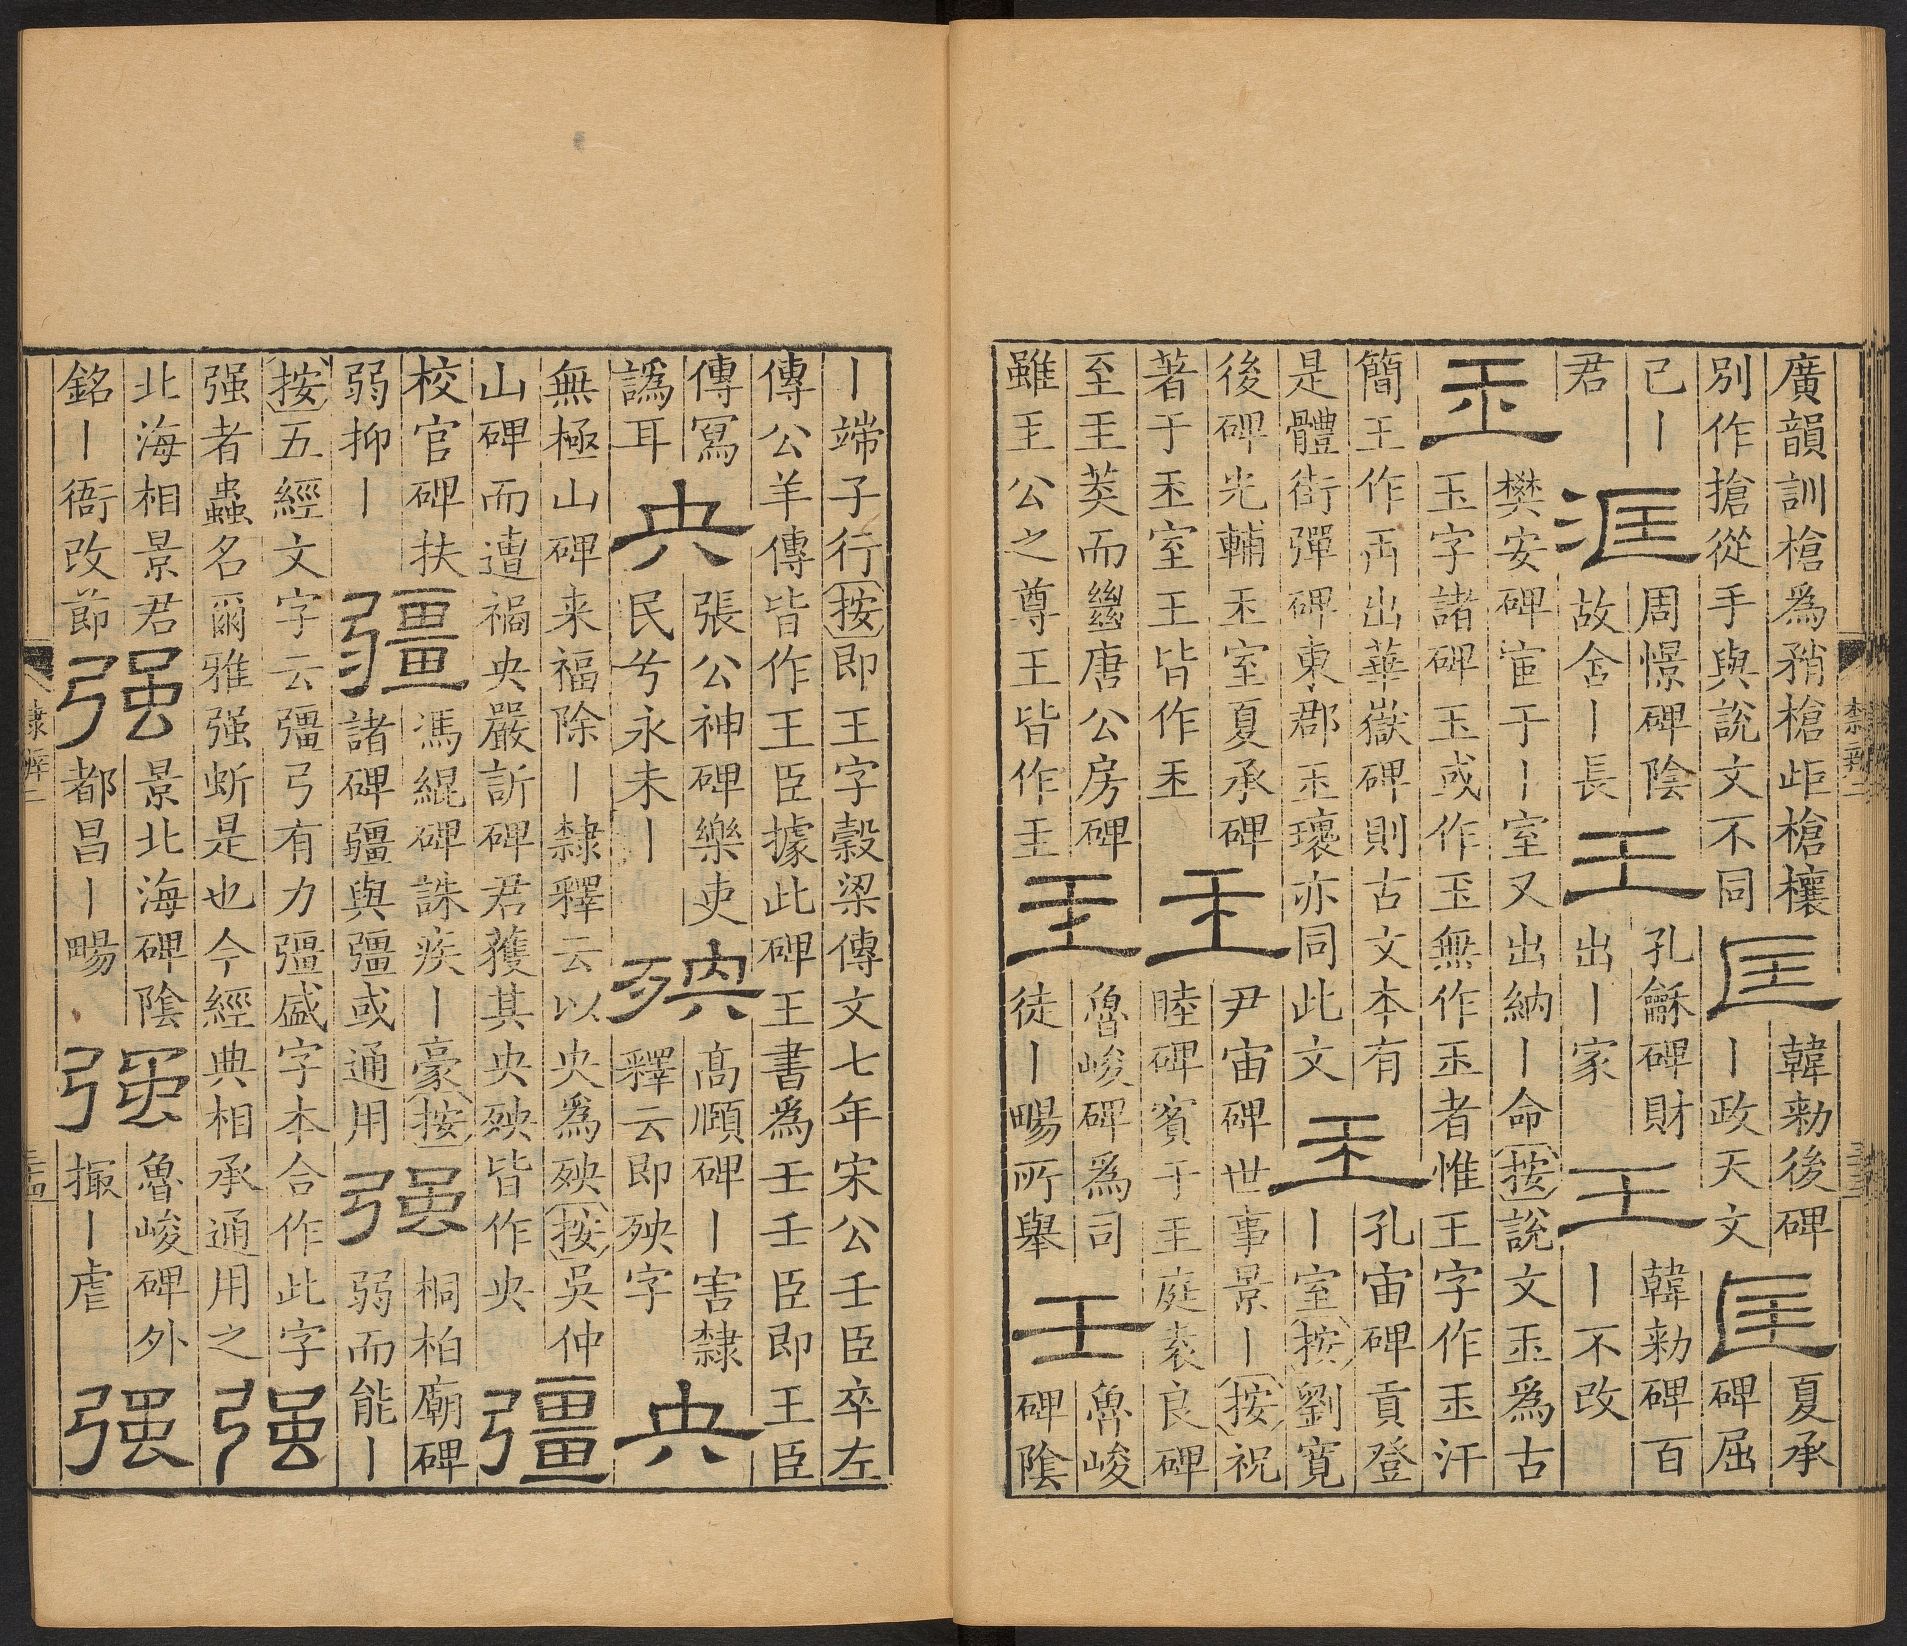 廣韻訓槍爲矟槍岠槍欀
別作搶從手與說文不同
匡
韓勑後碑
｜政天文
匡
夏承
碑屈
已｜
君
洭
周憬碑陰
故舍｜長
王
孔龢碑財
出｜家
王
韓勑碑百
｜不改
玊
樊安碑宙于｜室又出納｜命按說文玊爲古
玉字諸碑玉或作玉無作玊者惟王字作玊汗
簡王作𠕒出華嶽碑則古文本有
是體街彈碑東郡玊瓌亦同此文
王
孔宙碑貢登
｜室按劉寬
後碑光輔玊室夏承碑
著于玊室王皆作玊
王
尹宙碑世事景｜按祝
睦碑賓于王庭袁良碑
至王莽而絶唐公房碑
雖王公之尊王皆作王
王
魯峻碑爲司
徒｜暢所舉
王
魯峻
碑陰
隸辨二
三十四
｜端子行按即王字穀梁傳文七年宋公壬臣卒左
傳公羊傳皆作王臣據此碑王書爲壬壬臣即王臣
傳寫
譌耳
央
張公神碑樂吏
民兮永未｜
殃
高頤碑｜害隸
釋云即殃字
央
無極山碑来福除｜隸釋云以央爲殃按吳仲
山碑而遭禍央嚴訢碑君獲其央殃皆作央
彊
校官碑扶
弱抑｜
彊
馮緄碑誅疾｜豪按
諸碑疆與彊或通用
强
桐柏廟碑
弱而能｜
按五經文字云彊弓有力彊盛字本合作此字
强者蟲名爾雅强蚚是也今經典相承通用之
强
北海相景君
銘｜衙改節
强
景北海碑陰
都昌｜暢
强
魯峻碑外
撮｜虐
强